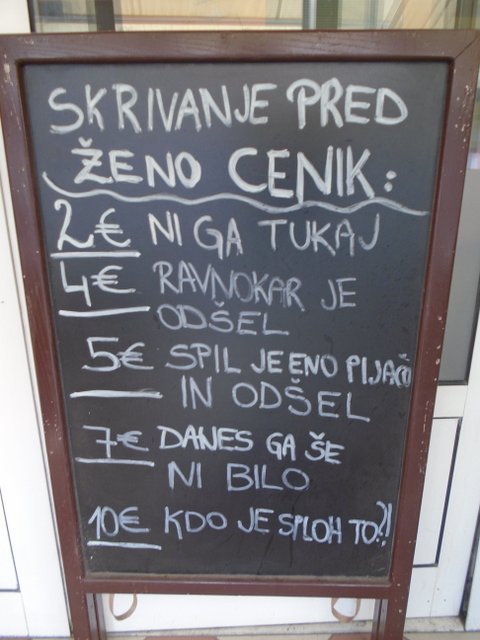 SKRIVANJE PRED
ŽENO CENIK:
2€ NI GA TUKAJ
4€ RAVNOKAR JE
ODŠEL
5€ SPIL JE ENO PIJAČO
IN ODŠEL
7€ DANES GA ŠE
NI BILO
10€ KDO JE SPLOH TO?!